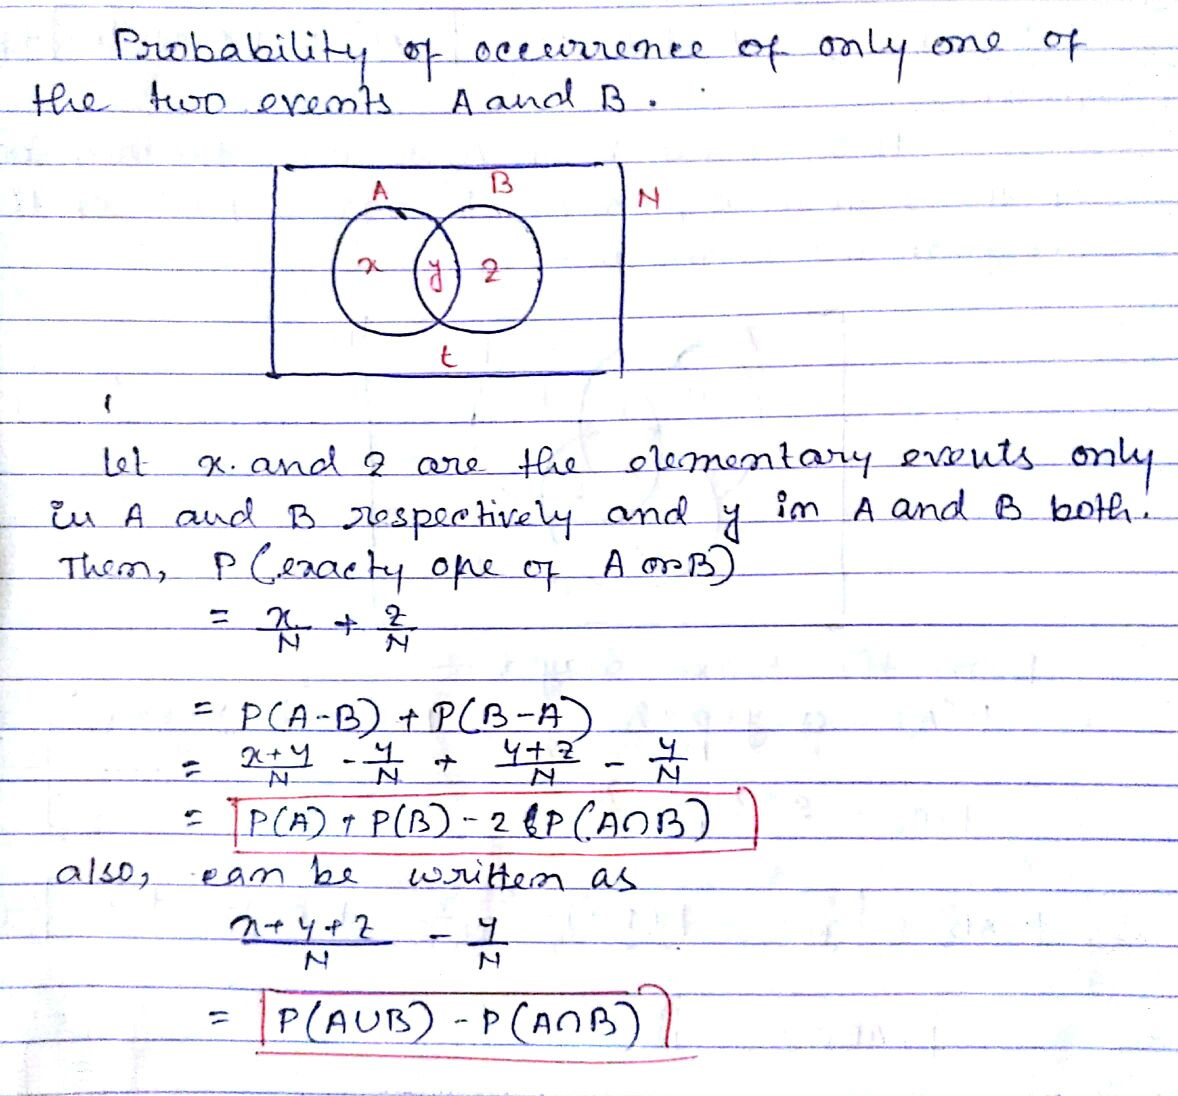 Probability of occurrence of only one of
the two events A and B.
A B N
x y z
t
Let x. and z are the elementary events only
in A and B respectively and y in A and B both.
Then, P (exacty one of A or B)
= x/N + z/N
= P(A-B) + P(B-A)
= x+y/N - y/N + y+z/N - y/N
= P(A) + P(B) - 2 P(A∩B)
also, can be written as
x+y+z/N - y/N
= P(A∪B) - P(A∩B)